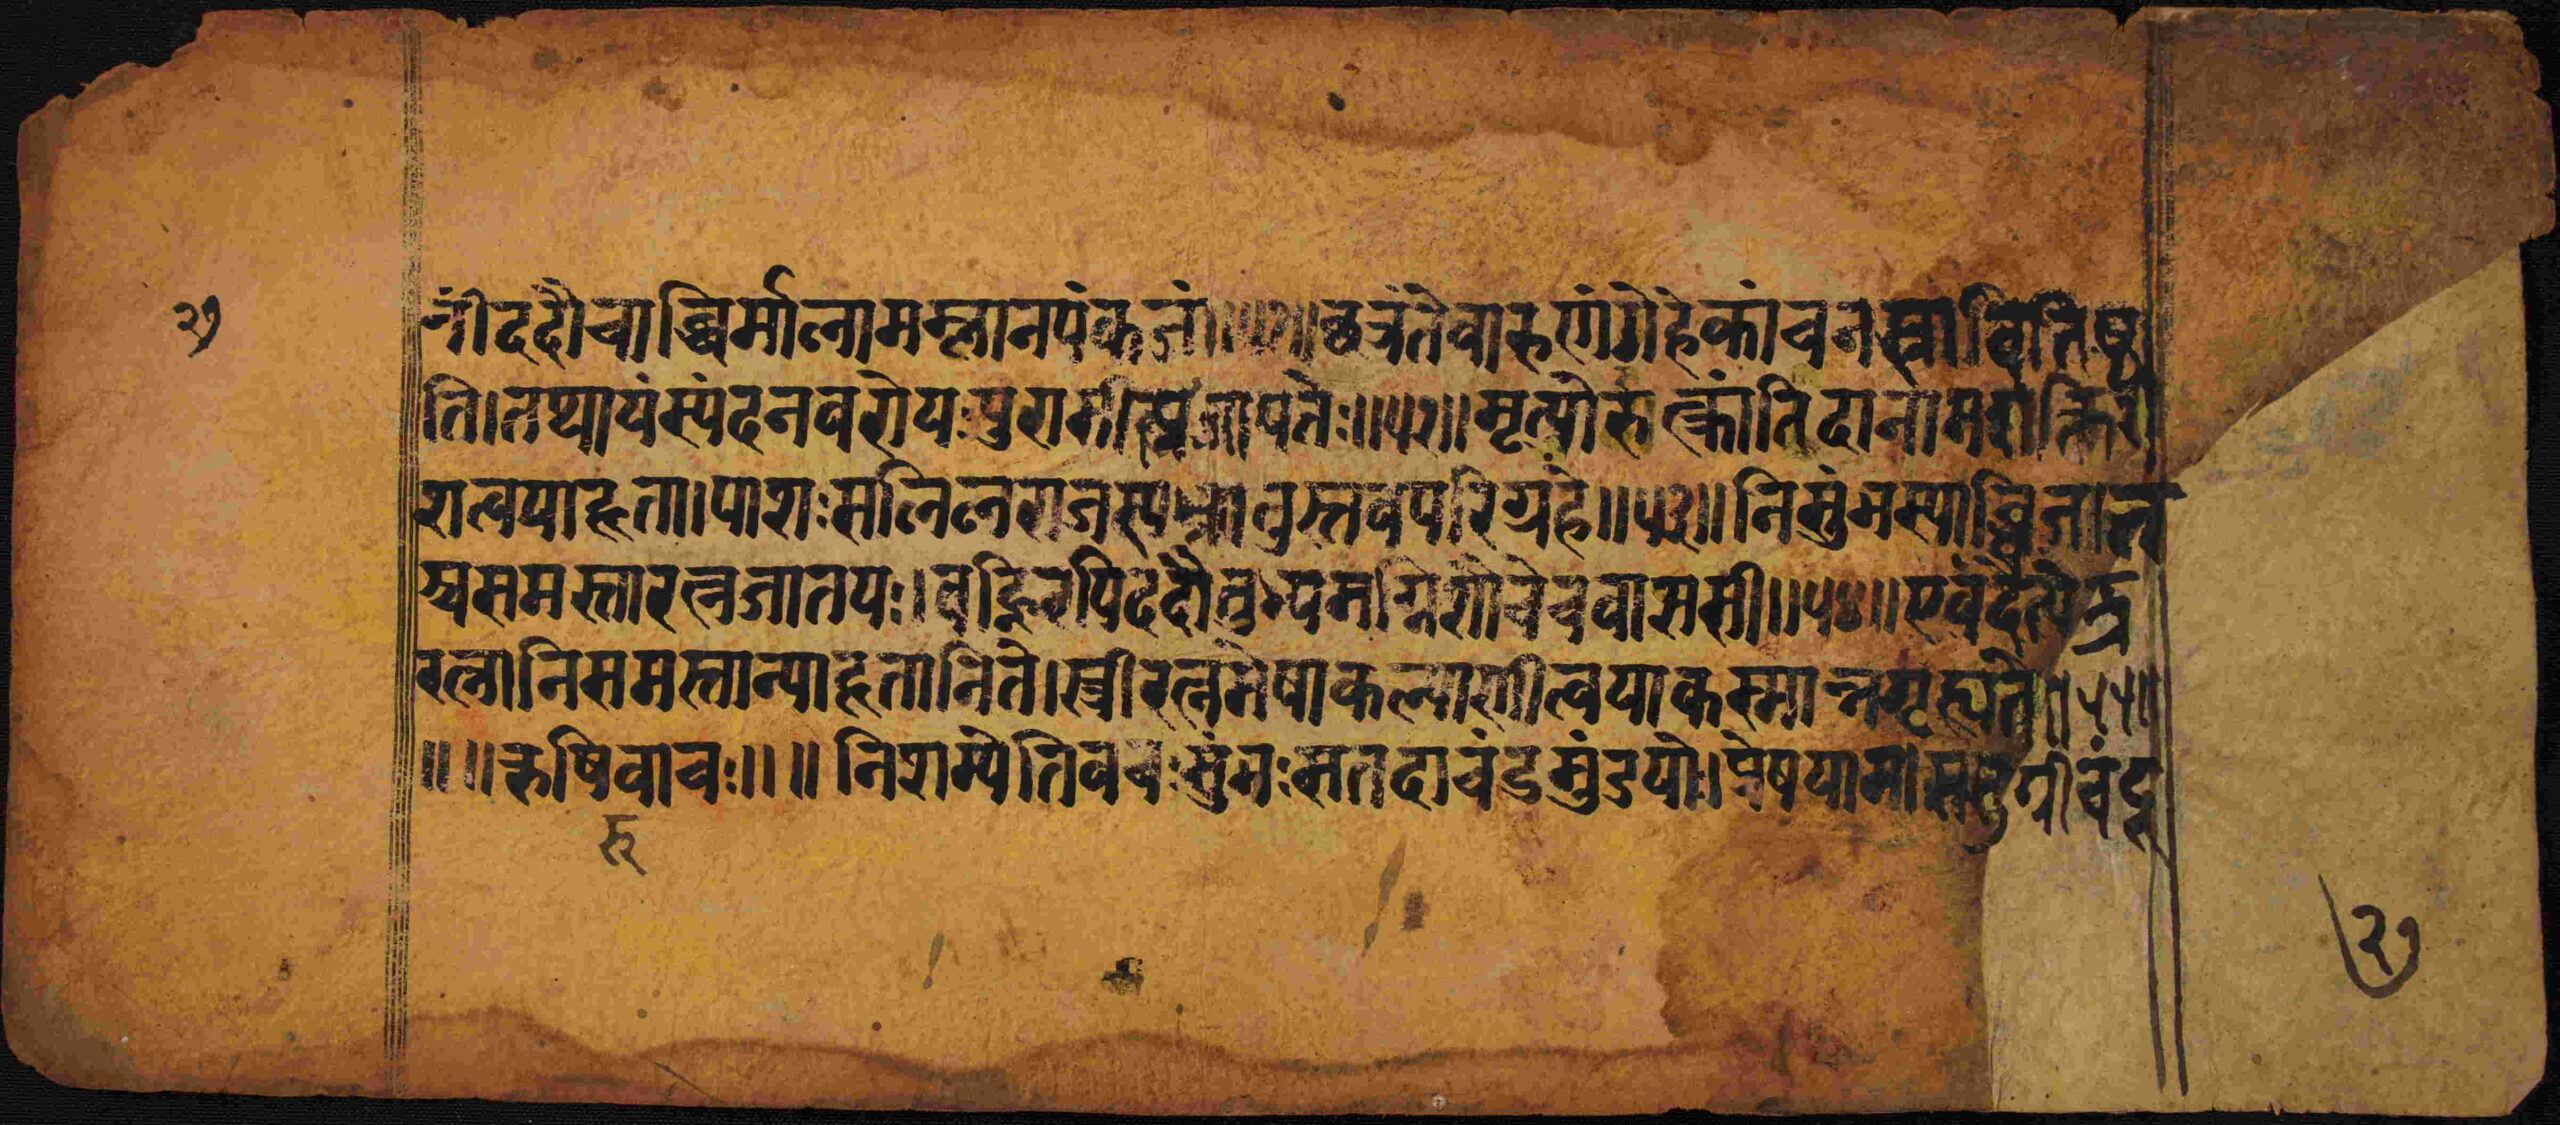 २७
नीं ददौ चाब्धिर्मालामम्लानपंकजां॥ ॥छत्रं ते वारुणं गेहे कांचनस्रावि तिष्ठ
ति।तथायं स्यंदनवरो यः पुरासीत्प्रजापतेः॥ ॥मृत्योरुत्क्रांतिदा नाम शक्तिरी
श त्वया हृता।पाशः सलिलराजस्य भ्रातुस्तव परिग्रहे॥५३॥निसुंभस्याब्धिजाता
श्च समस्ता रत्नजातयः।वह्निरपि ददौ तुभ्यमग्निशौचे च वाससी॥५४॥एवं दैत्येंद्र
रत्नानि समस्तान्याहृतानि ते।स्त्रीरत्नमेषा कल्याणी त्वया कस्मान्न गृह्यते॥५५॥
॥ ॥ऋषिवाचः॥ ॥ निशम्येति वचः सुंभः स तदा चंडमुंडयोः।प्रेषयामास सुग्रीवं दू
रु
२७